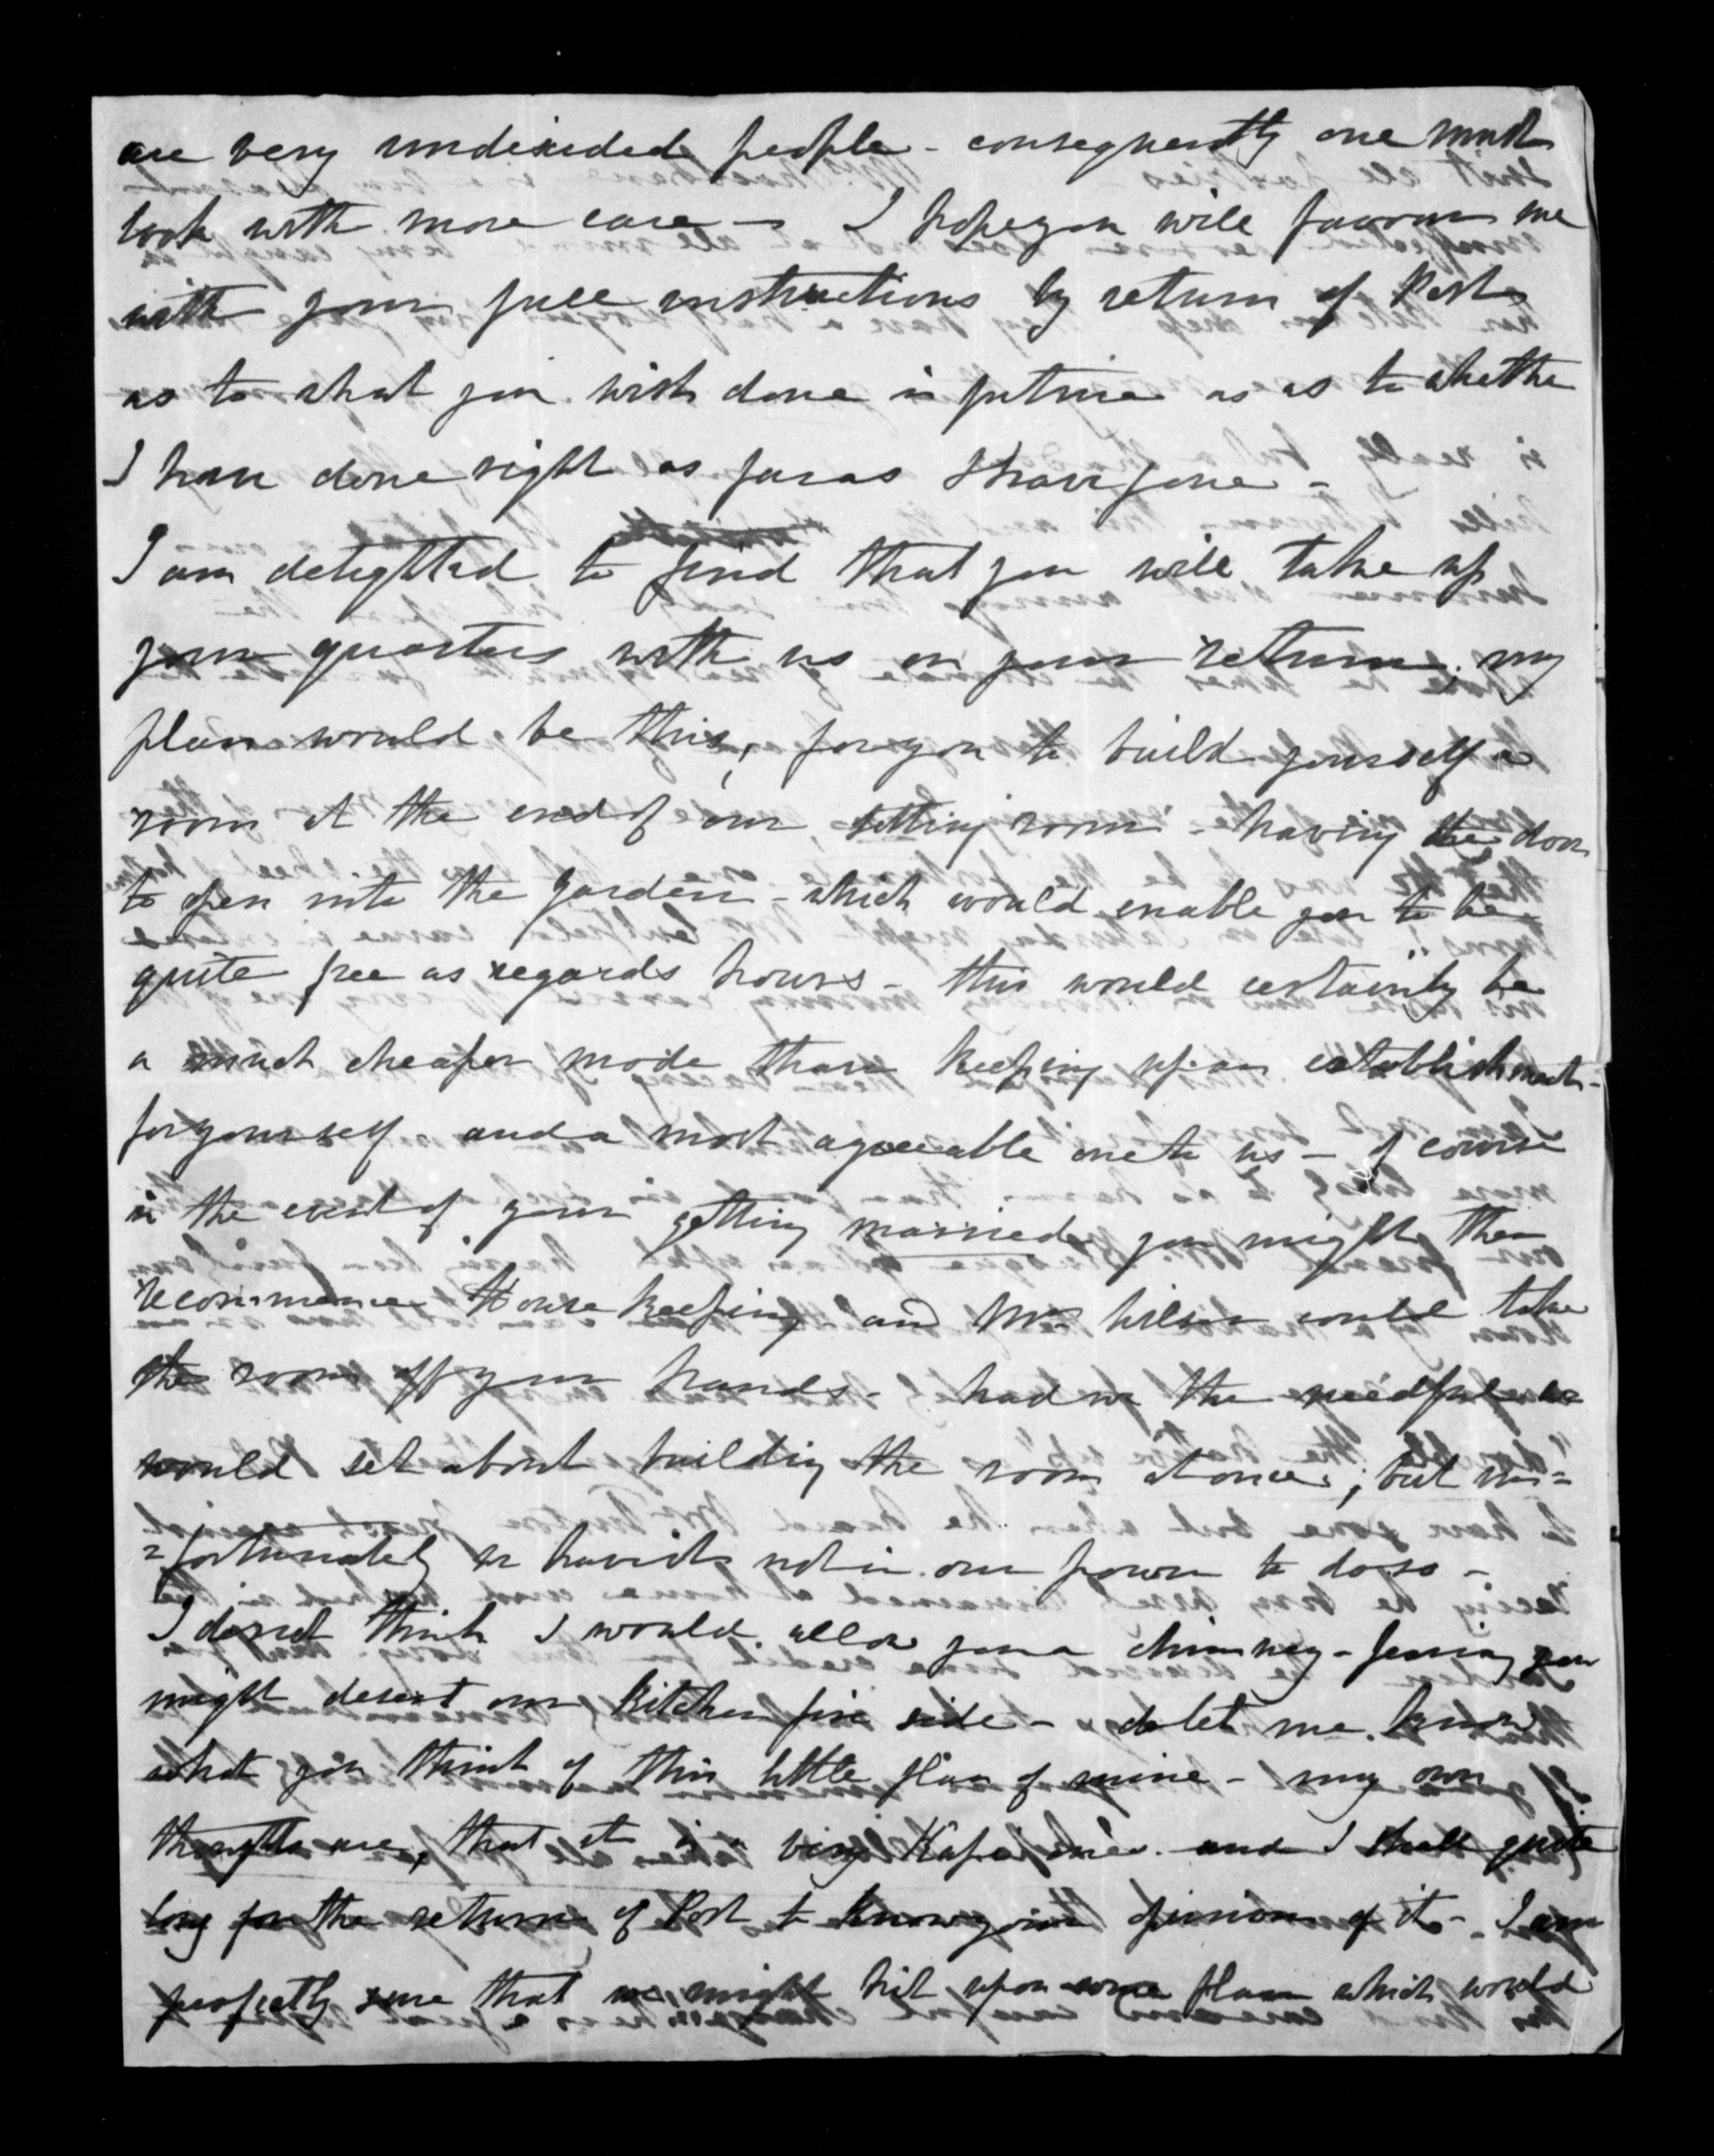 are very undecided people - consequently one must
look with more care - I hope you will favour me
with your full instructions by return of Post
as to what you wish done in future as as to whether
I have done right as far as I have gone -
I am delighted to find that you will take up
your quarters with us on your return, my
plan would be this, for you to build yourself a
room at the end of our sitting room - having the door
to open into the garden - which would enable you to be
quite free as regards hours - this would certainly be
a much cheaper mode than keeping up an establishment -
for yourself - and a most agreeable one to us - of course
in the event of your getting married you might then
recommence House Keeping - and Mr could take
the room off your hands - had we the needful we
would set about building the room at once; but un=
=fortunately we have it not in our power to do so -
I do not think I would allow you a chimney - fearing you
might desert our Kitchen fire side - do let me know
what you think of this little plan of mine - my own
thoughts are, that it is a very Kapai one - and I shall quite
long for the return of Post to know your opinion of it - I am
perfectly sure that we might hit upon some plan which would